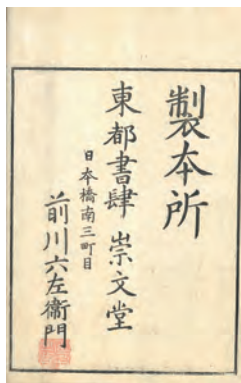 製本所
東都書肆 崇文堂
日本橋南三町目
前川六左衛門